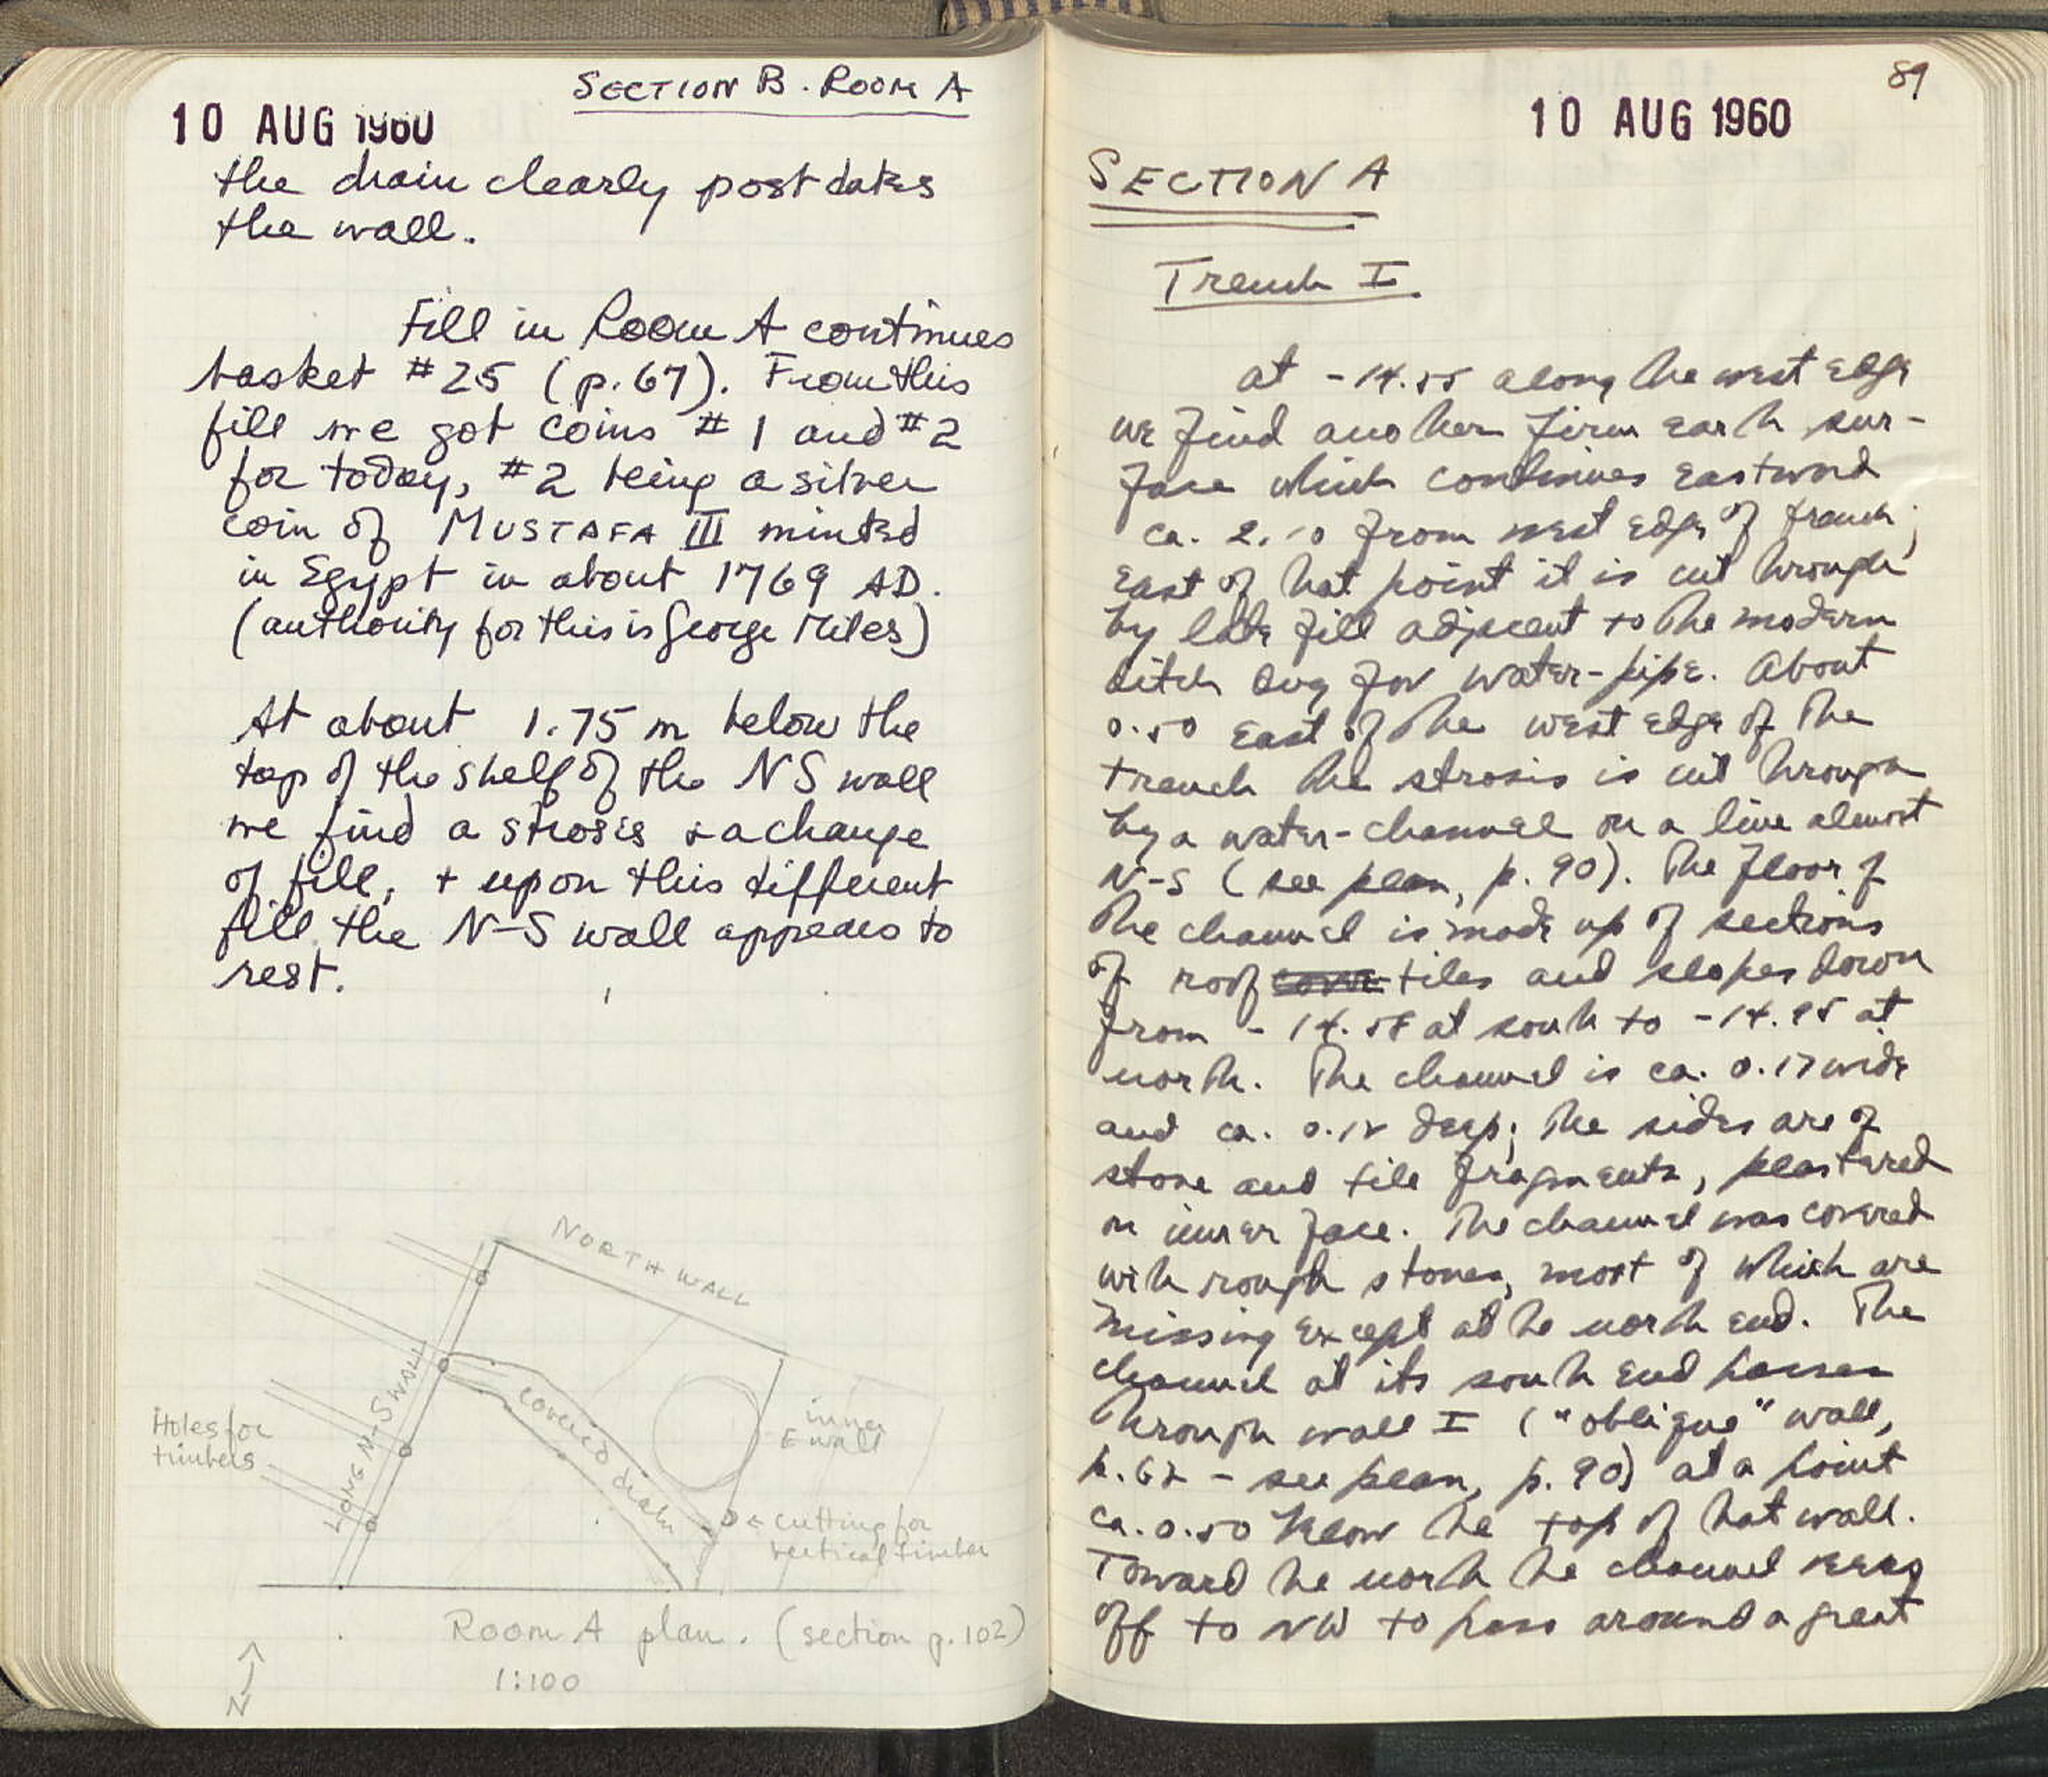 SECTION B. ROOM A
10 AUG 1960
the drain clearly postdates
the wall.
Fill in Room A continues
basket #25 (p.67). From this
fill we got coins #1 and #2
for today, #2 being a silver
coin of MUSTAFA III minted
in Egypt in about 1769 AD.
(authority for this is George Miles)
At about 1.75 m below the
top of the shelf of the NS wall
we find a strosis + a change
of fill, + upon this different
fill the N-S wall appears to
rest.
NORTH WALL
LONG N-S WALL
Holes for
timbers
covered drain
inner
E wall
← cutting for
vertical timber
Room A plan. (section p.102)
1:100
N
89
10 AUG 1960
SECTION A
Trench I.
at -14.55 along the west edge
we find another firm earth sur-
face which continues eastward
ca. 2.10 from west edge of trench;
east of that point it is cut through
by late fill adjacent to the modern
ditch dug for water-pipe. About
0.50 east of the west edge of the
trench the strosis is cut through
by a water-channel on a line almost
N-S (see plan, p. 90). The floor of
the channel is made up of sections
of roof tiles and slopes down
from -14.58 at south to -14.95 at
north. The channel is ca. 0.17 wide
and ca. 0.12 deep; the sides are of
stone and tile fragments, plastered
on inner face. The channel was covered
with rough stones, most of which are
missing except at the north end. The
channel at its south end passes
through wall I ("oblique" wall,
p. 62 - see plan, p. 90) at a point
ca. 0.50 below the top of that wall.
Toward the north the channel veers
off to NW to pass around a great